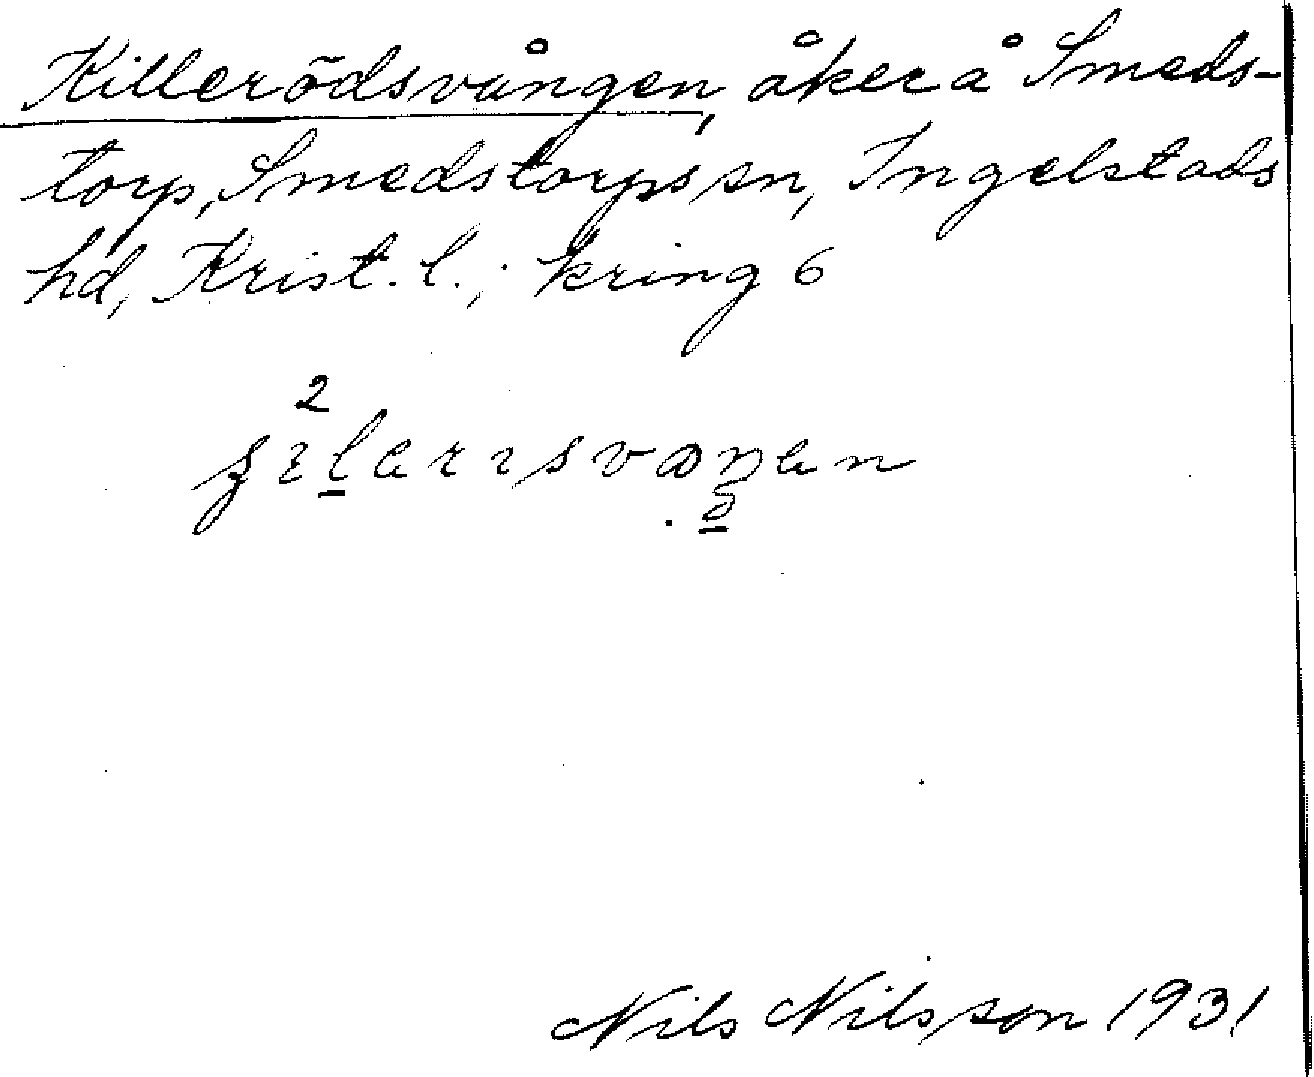 Killerödsvången, åker å Smeds-
torp, Smedstorps sn, Ingelstads
hd, Krist. l.; kring 6
Nils Nilsson 1931